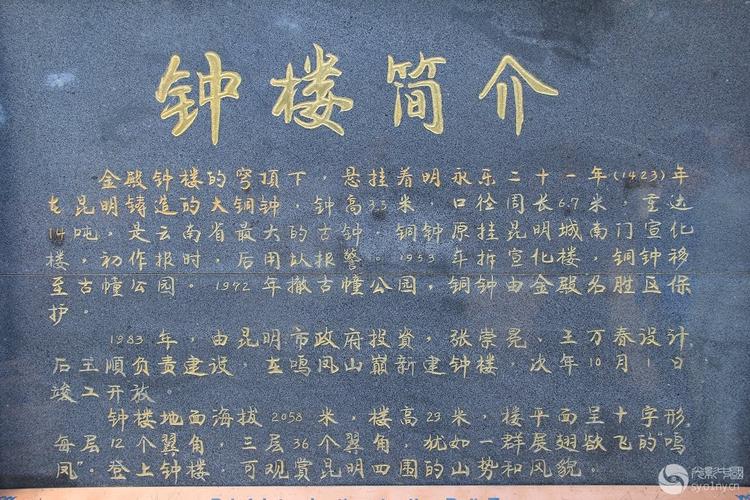 钟楼简介
金殿钟楼的穹顶下，悬挂着明永乐二十一年(1423)年
在昆明铸造的大铜钟，钟高3.3米，口径周长6.7米，重达
14吨，是云南省最大的古钟，铜钟原挂昆明城南门宣化
楼，初作报时，后用以报警。1953年拆宣化楼，铜钟移
至古幢公园。1972年撤古幢公园，铜钟由金殿名胜区保
护。
1983年，由昆明市政府投资，张崇尧、王万春设计，
后玉顺负责建设，在鸣凤山巅新建钟楼，次年10月1日
竣工开放。
钟楼地面海拔2058米，楼高29米，楼平面呈十字形，
每层12个翼角，三层36个翼角，犹如一群展翅欲飞的“鸣
凤”。登上钟楼，可观赏昆明四围的山势和风貌。
syo1ny.cn